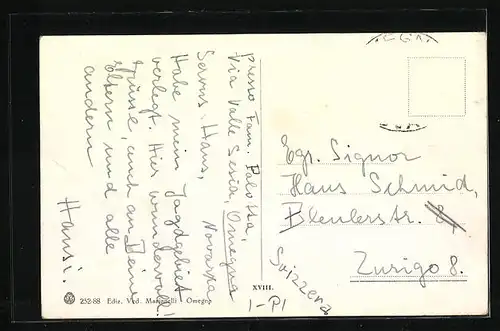 presso Fam. Palotta,
Via Valle Sesia, Omegna
Novara
Servus Hans,
Habe mein Jagdgebiet
verlegt. Hier wundervoll!
Grüsse, auch an Deine
Eltern und alle
andern
Hansi.
Egr. Signor
Hans Schmid,
Bleulerstr.
Zurigo 8.
Svizzera
XVIII.
1-PI
252-88 Ediz. Ved. Omegna